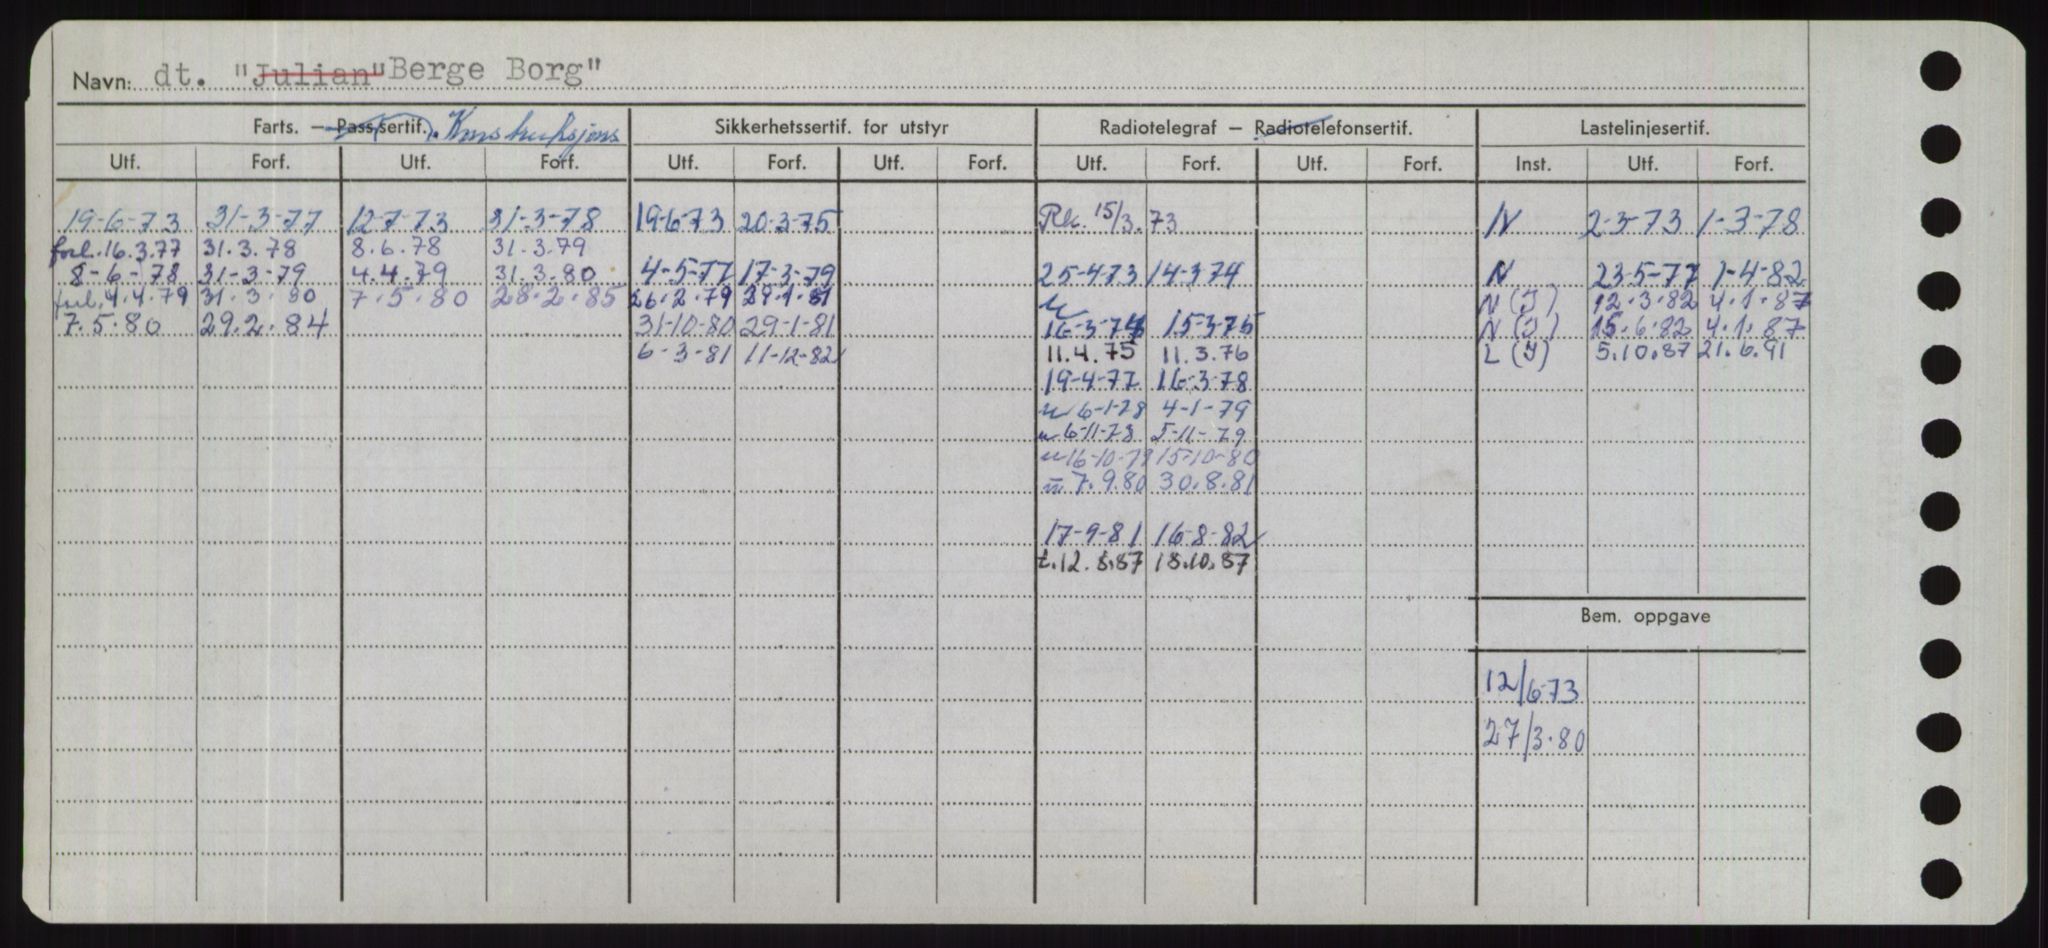 Navn: dt. "Julian" Berge Borg"
Farts. — Pass.sertif. Konstruksjons Sikkerhetssertif. for utstyr Radiotelegraf — Radiotelefonsertif. Lastelinjesertif.
Utf. Forf. Utf. Forf. Utf. Forf. Utf. Forf. Utf. Forf. Utf. Forf. Inst. Utf. Forf.
19-6-73 31-3-77 12-7-73 31-3-78 19-6-73 20-3-75 Rk. 15/3.73 N 2-3-73 1-3-78
forl. 16.3.77 31.3.78 8.6.78 31.3.79
8-6-78 31-3-79 4.4.79 31.3.80 4-5-77 17-3-79 25-4-73 14-3-74 N 23-5-77 1-4-82
forl. 4.4.79 31.3.80 7.5.80 28.2.85 26.2.79 29.1.81 N (I) 12.3.82 4.1.87
7.5.80 29.2.84 31-10-80 29-1-81 16-3-74 15-3-75 N (I) 15.6.82 4.1.87
6-3-81 11-12-82 11.4.75 11.3.76 L (I) 5.10.87 21.6.91
19-4-77 16-3-78
u 6-1-78 4-1-79
u 6-11-78 5-11-79
u 16-10-79 15-10-80
7.9.80 30.8.81
17-9-81 16-8-82
t.12.8.87 18.10.87
Bem. oppgave
12/6-73
27/3.80